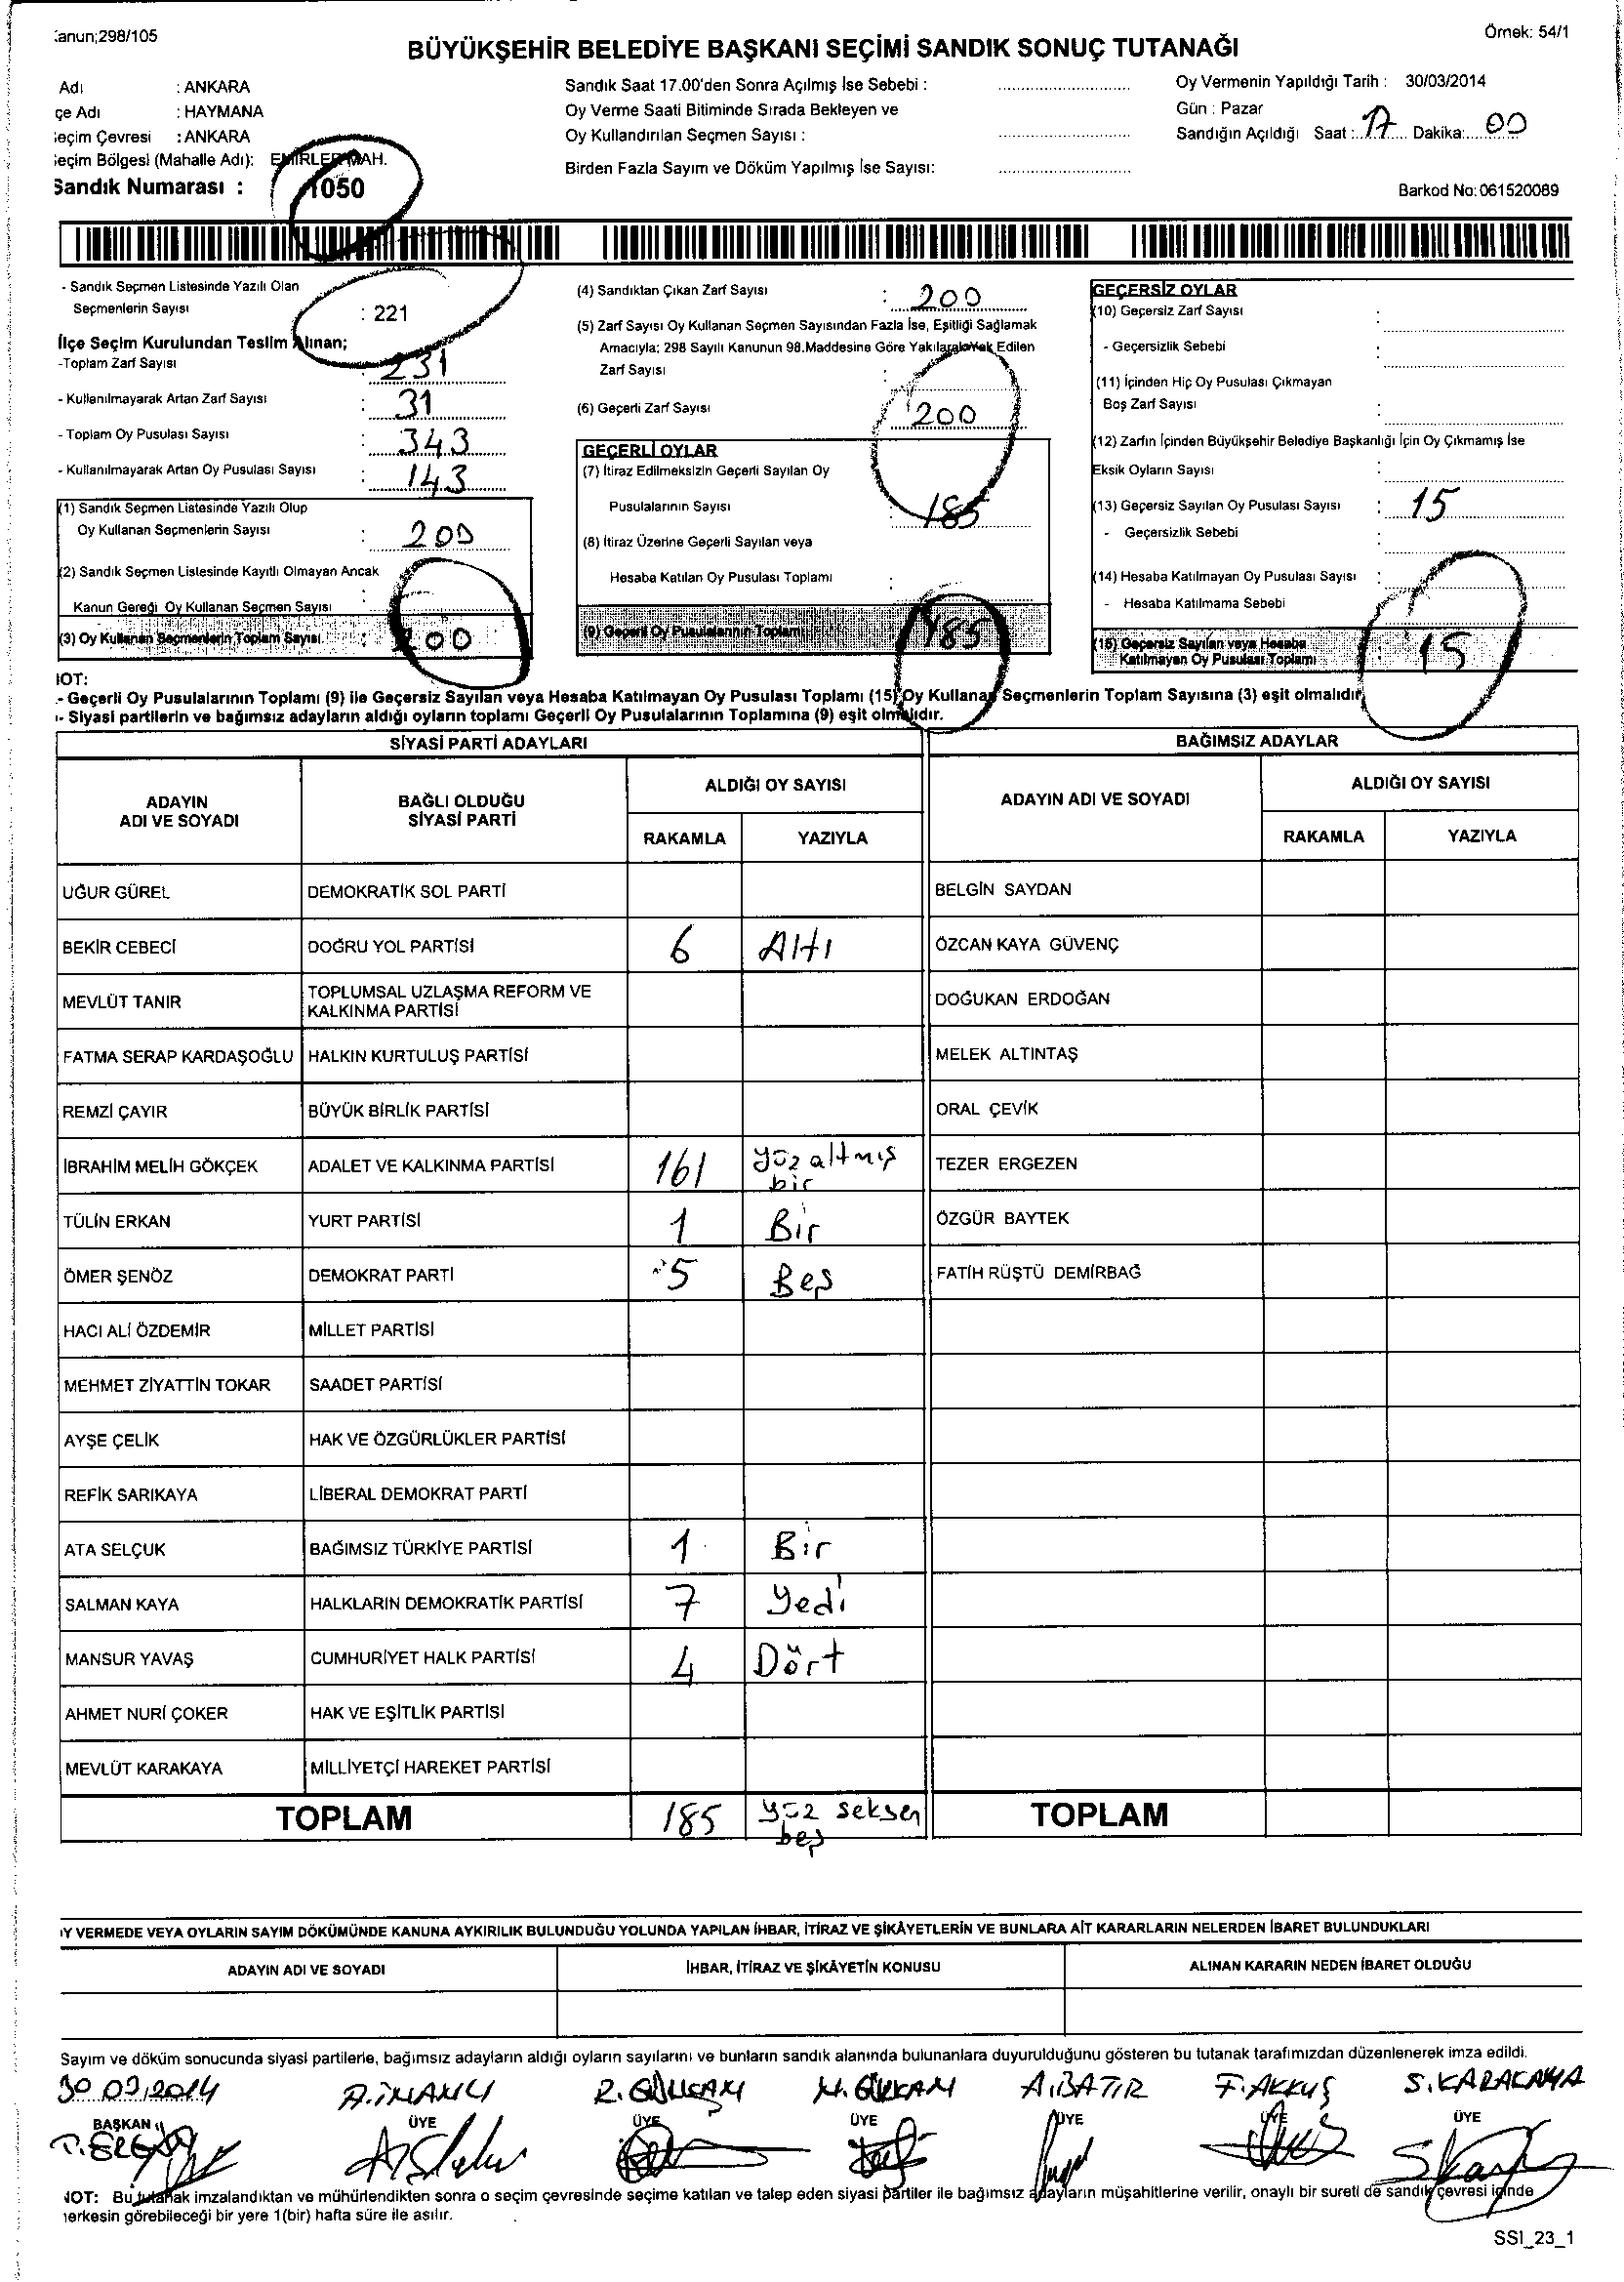 Kanun;298/105
Örnek: 54/1
BÜYÜKŞEHİR BELEDİYE BAŞKANI SEÇİMİ SANDIK SONUÇ TUTANAĞI
Adı : ANKARA
çe Adı : HAYMANA
eçim Çevresi : ANKARA
eçim Bölgesi (Mahalle Adı): EMİRLER MAH.
Sandık Numarası : 1050
Sandık Saat 17.00'den Sonra Açılmış İse Sebebi :
Oy Verme Saati Bitiminde Sırada Bekleyen ve
Oy Kullandırılan Seçmen Sayısı :
Birden Fazla Sayım ve Döküm Yapılmış İse Sayısı:
Oy Vermenin Yapıldığı Tarih : 30/03/2014
Gün : Pazar
Sandığın Açıldığı Saat : 17 Dakika: 00
Barkod No: 061520089
- Sandık Seçmen Listesinde Yazılı Olan
Seçmenlerin Sayısı : 221
İlçe Seçim Kurulundan Teslim Alınan;
-Toplam Zarf Sayısı : 231
- Kullanılmayarak Artan Zarf Sayısı : 31
- Toplam Oy Pusulası Sayısı : 343
- Kullanılmayarak Artan Oy Pusulası Sayısı : 143
(1) Sandık Seçmen Listesinde Yazılı Olup
Oy Kullanan Seçmenlerin Sayısı : 200
(2) Sandık Seçmen Listesinde Kayıtlı Olmayan Ancak
Kanun Gereği Oy Kullanan Seçmen Sayısı :
(3) Oy Kullanan Seçmenlerin Toplam Sayısı : 200
(4) Sandıktan Çıkan Zarf Sayısı : 200
(5) Zarf Sayısı Oy Kullanan Seçmen Sayısından Fazla İse, Eşitliği Sağlamak
Amacıyla; 298 Sayılı Kanunun 98.Maddesine Göre Yakılarak Yok Edilen
Zarf Sayısı :
(6) Geçerli Zarf Sayısı : 200
GEÇERLİ OYLAR
(7) İtiraz Edilmeksizin Geçerli Sayılan Oy
Pusulalarının Sayısı : 185
(8) İtiraz Üzerine Geçerli Sayılan veya
Hesaba Katılan Oy Pusulası Toplamı :
(9) Geçerli Oy Pusulalarının Toplamı : 185
GEÇERSİZ OYLAR
(10) Geçersiz Zarf Sayısı :
- Geçersizlik Sebebi :
(11) İçinden Hiç Oy Pusulası Çıkmayan
Boş Zarf Sayısı :
(12) Zarfın İçinden Büyükşehir Belediye Başkanlığı İçin Oy Çıkmamış İse
Eksik Oyların Sayısı :
(13) Geçersiz Sayılan Oy Pusulası Sayısı : 15
- Geçersizlik Sebebi :
(14) Hesaba Katılmayan Oy Pusulası Sayısı :
- Hesaba Katılmama Sebebi
(15) Geçersiz Sayılan veya Hesaba
Katılmayan Oy Pusulası Toplamı : 15
NOT:
- Geçerli Oy Pusulalarının Toplamı (9) ile Geçersiz Sayılan veya Hesaba Katılmayan Oy Pusulası Toplamı (15) Oy Kullanan Seçmenlerin Toplam Sayısına (3) eşit olmalıdır.
- Siyasi partilerin ve bağımsız adayların aldığı oyların toplamı Geçerli Oy Pusulalarının Toplamına (9) eşit olmalıdır.
SİYASİ PARTİ ADAYLARI BAĞIMSIZ ADAYLAR
ADAYIN ADI VE SOYADI BAĞLI OLDUĞU SİYASİ PARTİ ALDIĞI OY SAYISI ADAYIN ADI VE SOYADI ALDIĞI OY SAYISI
RAKAMLA YAZIYLA RAKAMLA YAZIYLA
UĞUR GÜREL DEMOKRATİK SOL PARTİ BELGİN SAYDAN
BEKİR CEBECİ DOĞRU YOL PARTİSİ 6 Altı ÖZCAN KAYA GÜVENÇ
MEVLÜT TANIR TOPLUMSAL UZLAŞMA REFORM VE KALKINMA PARTİSİ DOĞUKAN ERDOĞAN
FATMA SERAP KARDAŞOĞLU HALKIN KURTULUŞ PARTİSİ MELEK ALTINTAŞ
REMZİ ÇAYIR BÜYÜK BİRLİK PARTİSİ ORAL ÇEVİK
İBRAHİM MELİH GÖKÇEK ADALET VE KALKINMA PARTİSİ 161 yüz altmış bir TEZER ERGEZEN
TÜLİN ERKAN YURT PARTİSİ 1 Bir ÖZGÜR BAYTEK
ÖMER ŞENÖZ DEMOKRAT PARTİ 5 Beş FATİH RÜŞTÜ DEMİRBAĞ
HACI ALİ ÖZDEMİR MİLLET PARTİSİ
MEHMET ZİYATTİN TOKAR SAADET PARTİSİ
AYŞE ÇELİK HAK VE ÖZGÜRLÜKLER PARTİSİ
REFİK SARIKAYA LİBERAL DEMOKRAT PARTİ
ATA SELÇUK BAĞIMSIZ TÜRKİYE PARTİSİ 1 Bir
SALMAN KAYA HALKLARIN DEMOKRATİK PARTİSİ 7 Yedi
MANSUR YAVAŞ CUMHURİYET HALK PARTİSİ 4 Dört
AHMET NURİ ÇOKER HAK VE EŞİTLİK PARTİSİ
MEVLÜT KARAKAYA MİLLİYETÇİ HAREKET PARTİSİ
TOPLAM 185 yüz seksen beş TOPLAM
Y VERMEDE VEYA OYLARIN SAYIM DÖKÜMÜNDE KANUNA AYKIRILIK BULUNDUĞU YOLUNDA YAPILAN İHBAR, İTİRAZ VE ŞİKÂYETLERİN VE BUNLARA AİT KARARLARIN NELERDEN İBARET BULUNDUKLARI
ADAYIN ADI VE SOYADI İHBAR, İTİRAZ VE ŞİKÂYETİN KONUSU ALINAN KARARIN NEDEN İBARET OLDUĞU
Sayım ve döküm sonucunda siyasi partilerle, bağımsız adayların aldığı oyların sayılarını ve bunların sandık alanında bulunanlara duyurulduğunu gösteren bu tutanak tarafımızdan düzenlenerek imza edildi.
30.03.2014 A.İNANLI M. GÜRKAN A.BATIR F. AKKUŞ S. KARAKAYA
BAŞKAN ÜYE ÜYE ÜYE ÜYE ÜYE ÜYE
NOT: Bu tutanak imzalandıktan ve mühürlendikten sonra o seçim çevresinde seçime katılan ve talep eden siyasi partiler ile bağımsız adayların müşahitlerine verilir, onaylı bir sureti de sandık çevresi içinde
herkesin görebileceği bir yere 1(bir) hafta süre ile asılır.
SSI_23_1